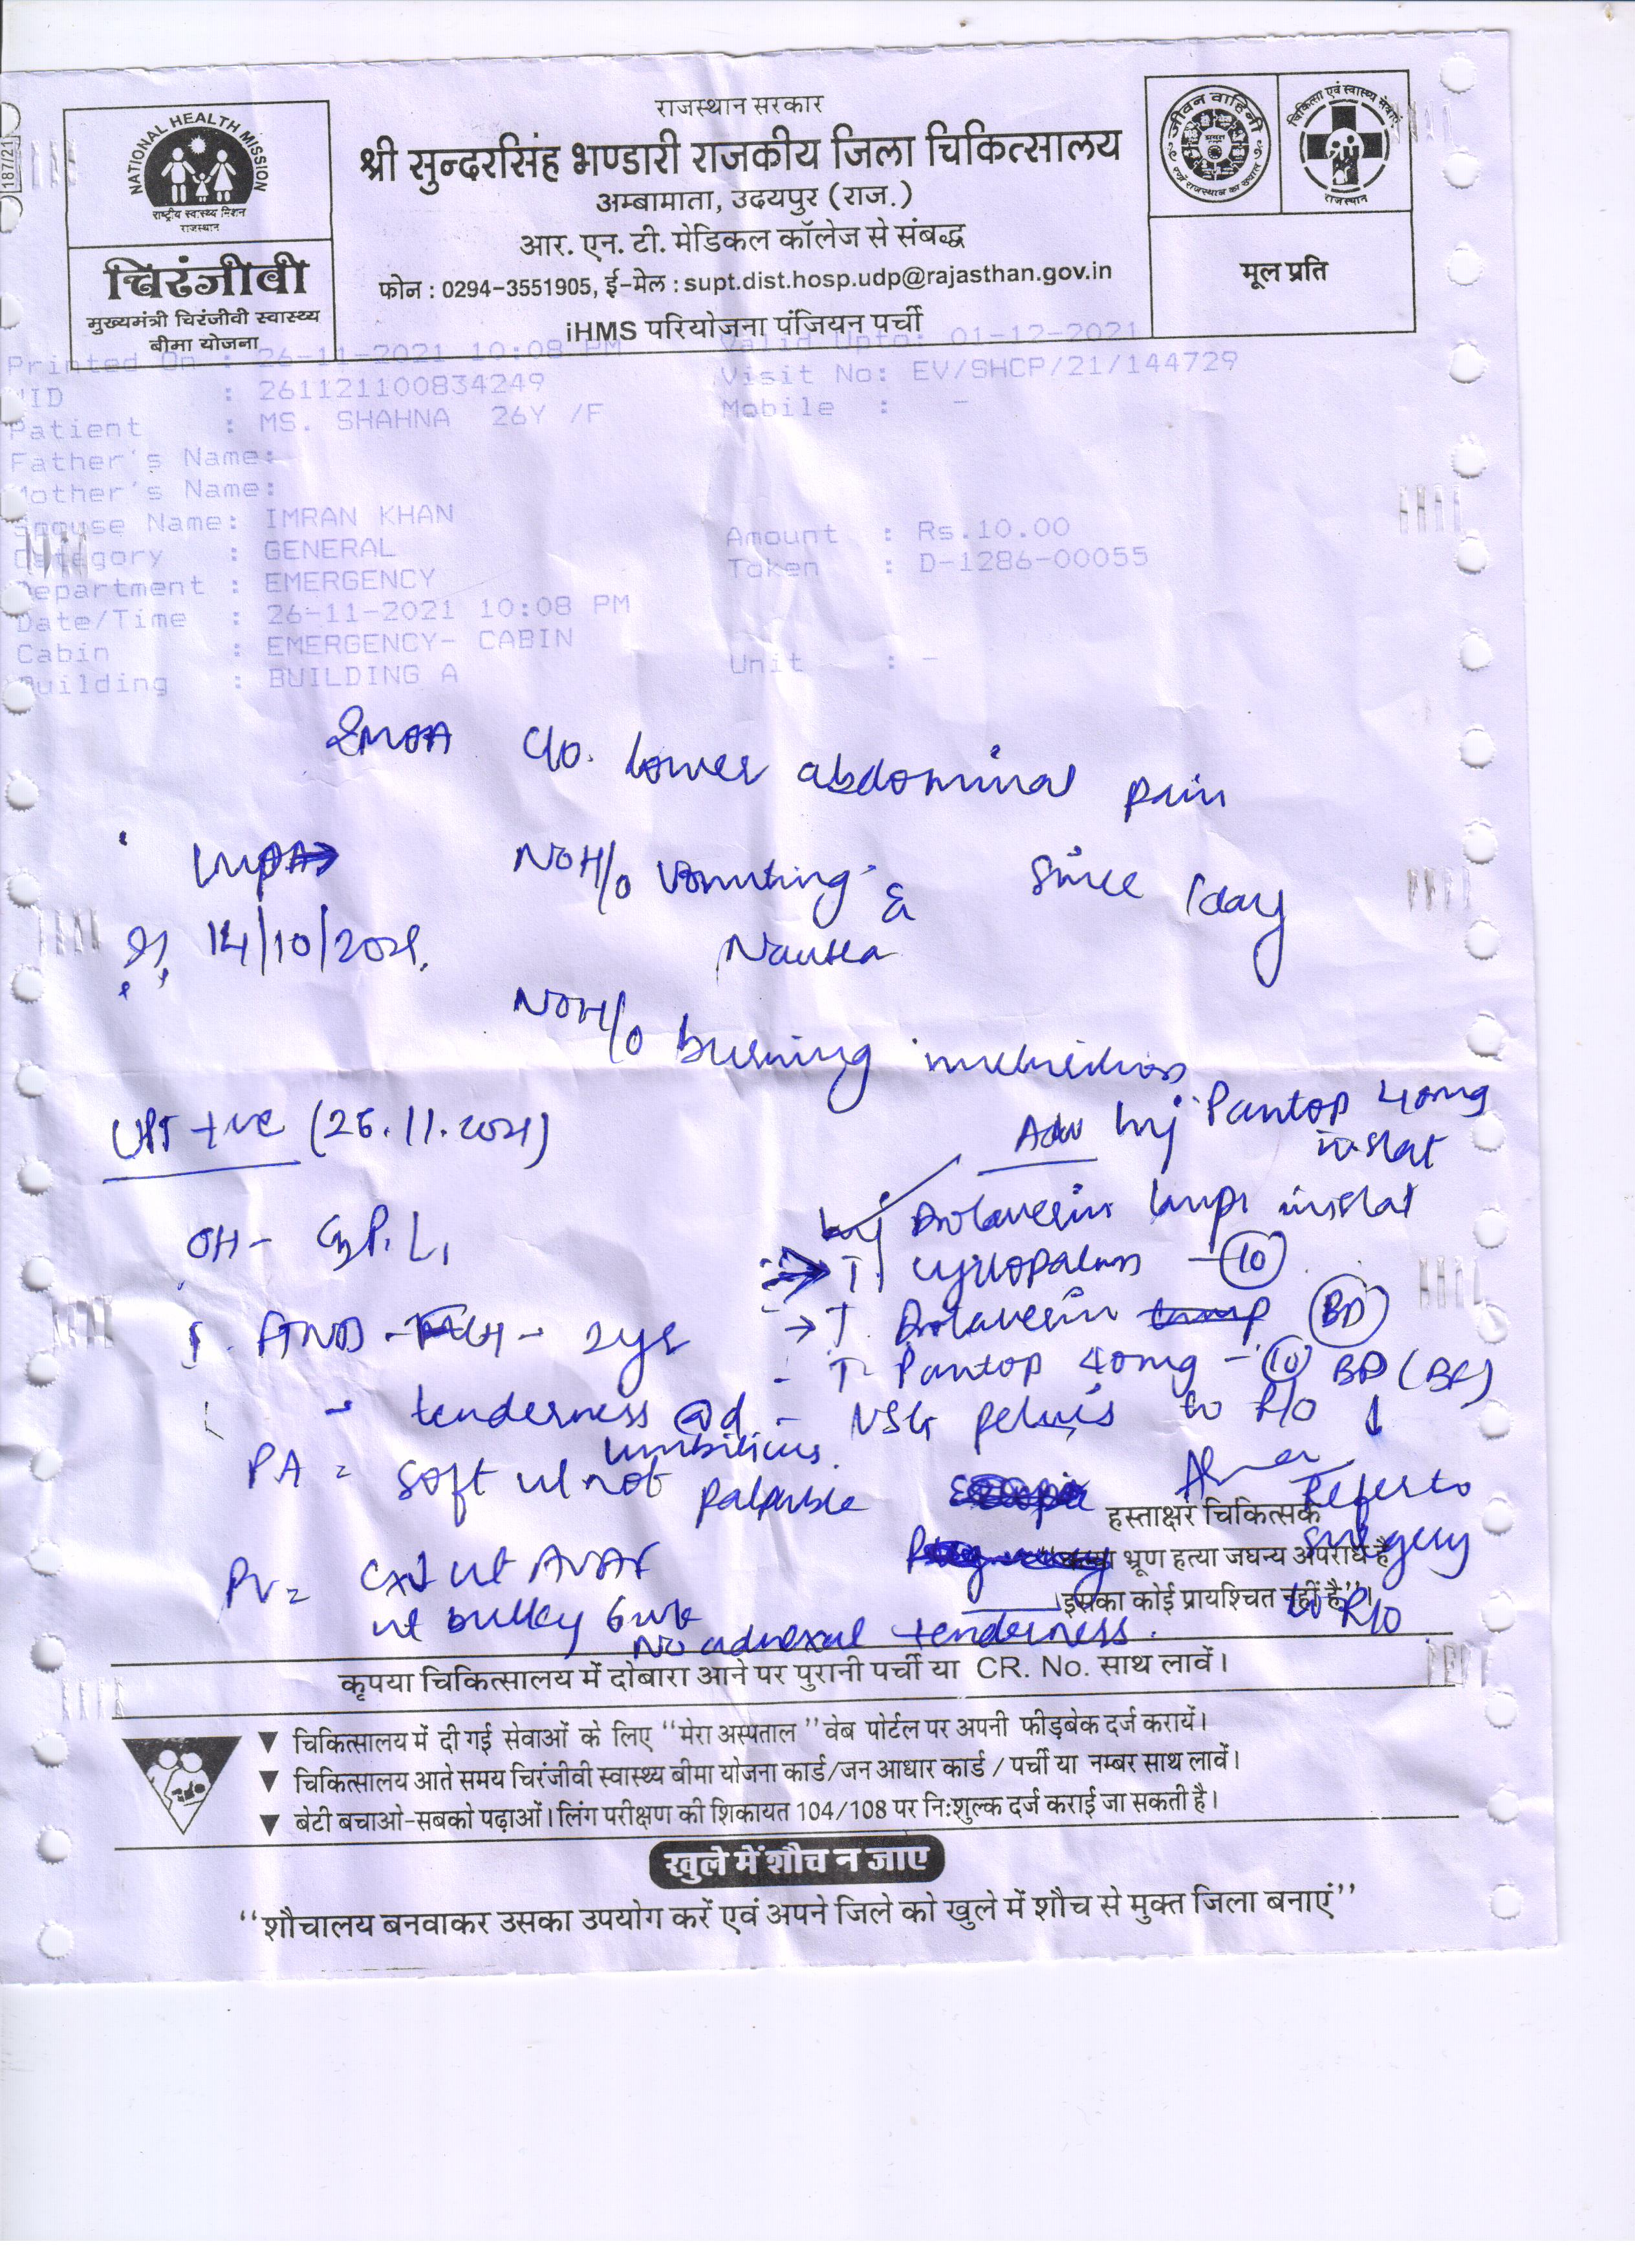 187/21
NATIONAL HEALTH MISSION
राष्ट्रीय स्वास्थ्य मिशन
राजस्थान
चिरंजीवी
मुख्यमंत्री चिरंजीवी स्वास्थ्य
बीमा योजना
राजस्थान सरकार
श्री सुन्दरसिंह भण्डारी राजकीय जिला चिकित्सालय
अम्बामाता, उदयपुर (राज.)
आर. एन. टी. मेडिकल कॉलेज से संबद्ध
फोन : 0294-3551905, ई-मेल : supt.dist.hosp.udp@rajasthan.gov.in
iHMS परियोजना पंजियन पर्ची
जीवन वाहिनी
चिकित्सा एवं स्वास्थ्य सेवाएं
राजस्थान
मूल प्रति
Printed On : 26-11-2021 10:08 PM Valid Upto: 01-12-2021
: 261121100834249 Visit No: EV/SHCP/21/144729
Patient : MS. SHAHNA 26Y /F Mobile : -
Father's Name:
Mother's Name:
Spouse Name: IMRAN KHAN
Category : GENERAL Amount : Rs.10.00
Department : EMERGENCY Token : D-1286-00055
Date/Time : 26-11-2021 10:08 PM
Cabin : EMERGENCY- CABIN
Building : BUILDING A Unit : -
2MOA C/o. lower abdominal pain
LMP NOH/o vomiting & since 1day
14/10/2021. Nausea
NOH/o burning
UPT +ve (26.11.2021) Adv Inj Pantop 40mg
iv stat
Inj Drotaverin 1amp stat
OH- G2P1L1 T. Cyclopalm - 10
T. Drotaverin BD
FTND - - 2yr
T- Pantop 40mg - 10 BD (BF)
- tenderness @d - USG pelvis to R/o ↓
umbilicus.
PA = soft ut not palpable Refer to
हस्ताक्षर चिकित्सक
surgery
भ्रूण हत्या जघन्य अपराध है
इसका कोई प्रायश्चित नहीं है”।
to R/o
PV = Cx↓ ut AVAF
ut bulky 6wk
No adnexal tenderness.
कृपया चिकित्सालय में दोबारा आने पर पुरानी पर्ची या CR. No. साथ लावें।
▼ चिकित्सालय में दी गई सेवाओं के लिए “मेरा अस्पताल” वेब पोर्टल पर अपनी फीड़बेक दर्ज करायें।
▼ चिकित्सालय आते समय चिरंजीवी स्वास्थ्य बीमा योजना कार्ड/जन आधार कार्ड / पर्ची या नम्बर साथ लावें।
▼ बेटी बचाओ-सबको पढ़ाओं। लिंग परीक्षण की शिकायत 104/108 पर नि:शुल्क दर्ज कराई जा सकती है।
खुले में शौच न जाए
“शौचालय बनवाकर उसका उपयोग करें एवं अपने जिले को खुले में शौच से मुक्त जिला बनाएं”